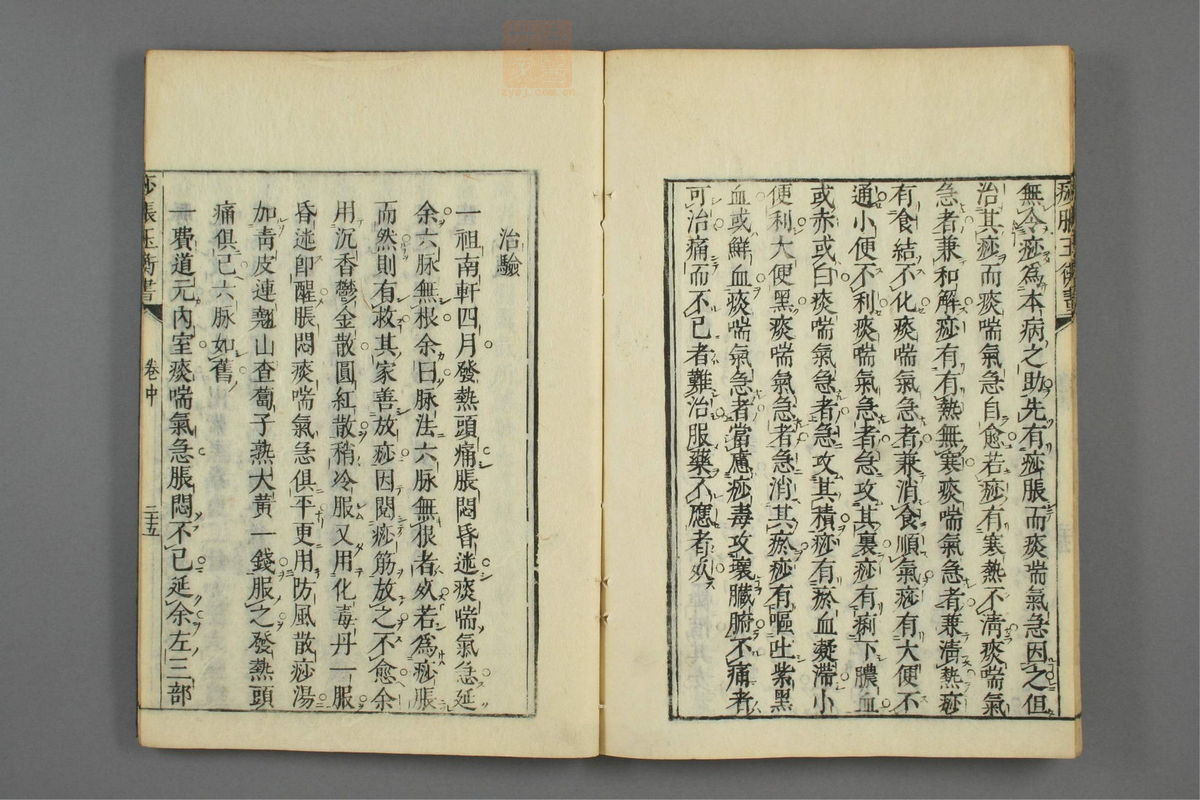 痧脹玉衡書
無令痧爲本病之助先有痧脹而痰喘氣急因之但
治其痧而痰喘氣急自愈若痧有寒熱不清痰喘氣
急者兼和解痧有有熱無寒痰喘氣急者兼清熱痧
有食結不化痰喘氣急者兼消食順氣痧有大便不
通小便不利痰喘氣急者急攻其裏痧有痢下膿血
或赤或白痰喘氣急者急攻其積痧有瘀血凝滯小
便利大便黑痰喘氣急者急消其瘀痧有嘔吐紫黑
血或鮮血痰喘氣急者當慮痧毒攻壞臟腑不痛者
可治痛而不已者難治服藥不應者死
治驗
一祖南軒四月發熱頭痛脹悶昏迷痰喘氣急延
余六脉無根余曰脉法六脉無根者死若爲痧脹
而然則有救其家善放痧因閱痧筋放之不愈余
用沉香鬱金散圓紅散稍冷服又用化毒丹一服
昏迷卽醒脹悶痰喘氣急俱平更用防風散痧湯
加靑皮連翹山査蔔子熟大黃一錢服之發熱頭
痛俱已六脉如舊
一費道元內室痰喘氣急脹悶不已延余左三部
痧脹玉衡書 卷中 二十五
zyyj.com.cn